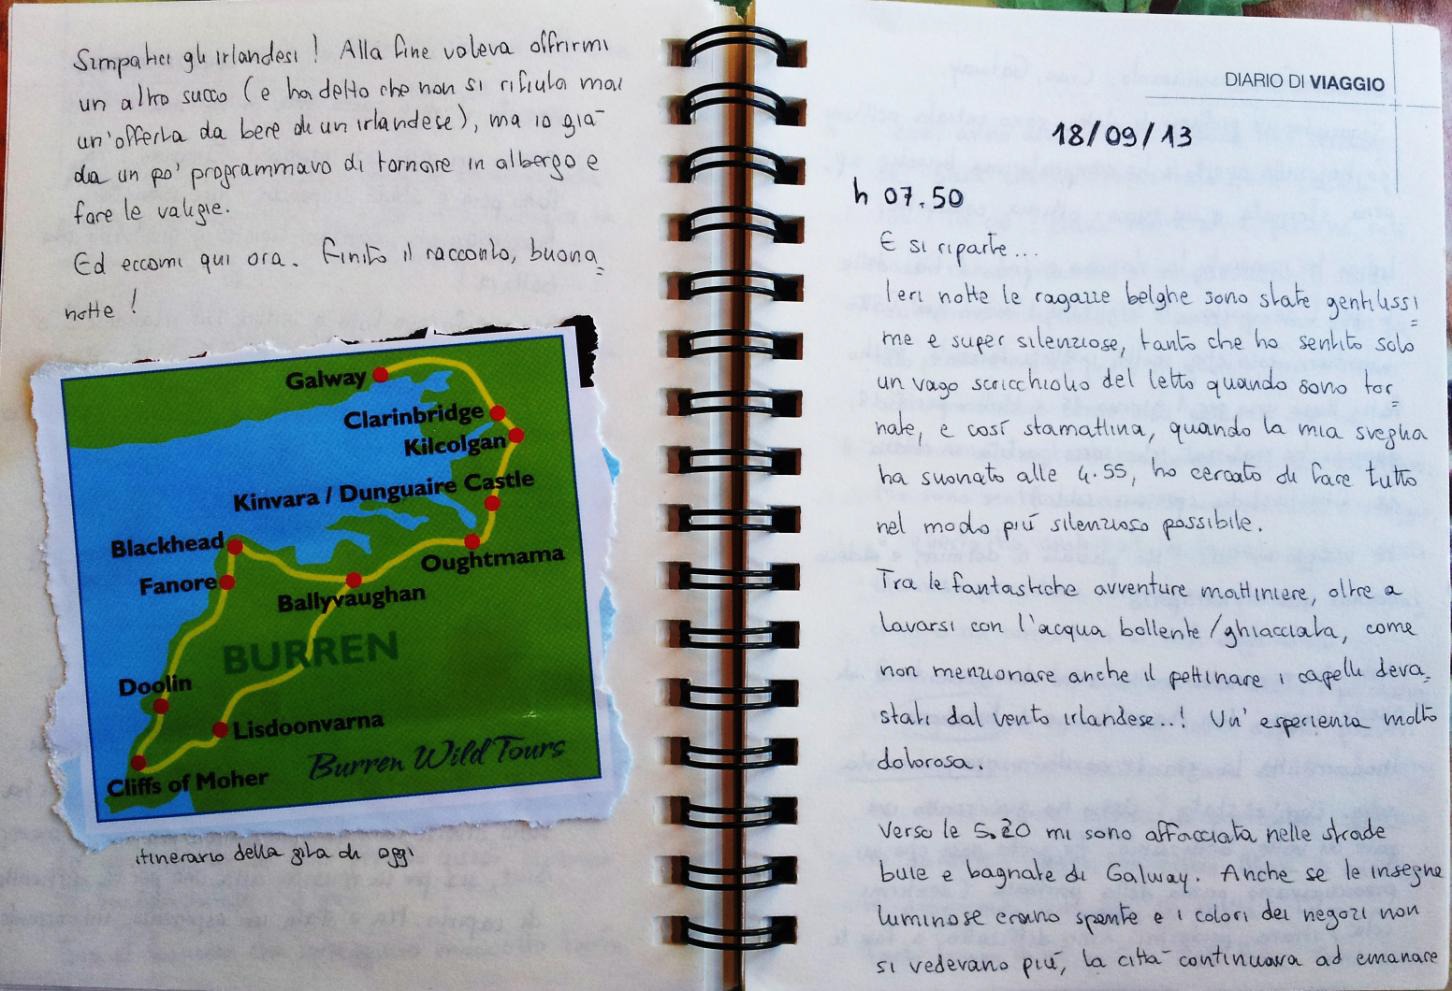 Simpatici gli irlandesi ! Alla fine voleva offrirmi
un altro succo (e ha detto che non si rifiuta mai
un'offerta da bere di un irlandese), ma io già
da un po' programmavo di tornare in albergo e
fare le valigie.
Ed eccomi qui ora. Finito il racconto, buona=
notte !
Galway
Clarinbridge
Kilcolgan
Kinvara / Dunguaire Castle
Blackhead
Oughtmama
Fanore
Ballyvaughan
BURREN
Doolin
Lisdoonvarna
Burren Wild Tours
Cliffs of Moher
itinerario della gita di oggi
DIARIO DI VIAGGIO
18/09/13
h 07.50
E si riparte...
Ieri notte le ragazze belghe sono state gentilissi=
me e super silenziose, tanto che ho sentito solo
un vago scricchiolio del letto quando sono tor=
nate, e così stamattina, quando la mia sveglia
ha suonato alle 4.55, ho cercato di fare tutto
nel modo più silenzioso possibile.
Tra le fantastiche avventure mattiniere, oltre a
lavarsi con l'acqua bollente/ghiacciata, come
non menzionare anche il pettinare i capelli deva=
stati dal vento irlandese..! Un' esperienza molto
dolorosa.
Verso le 5.20 mi sono affacciata nelle strade
buie e bagnate di Galway. Anche se le insegne
luminose erano spente e i colori dei negozi non
si vedevano più, la città continuava ad emanare